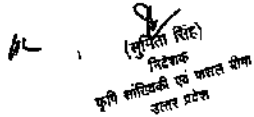 (सुमिता सिंह)
निदेशक
कृषि सांख्यिकी एवं फसल बीमा
उत्तर प्रदेश